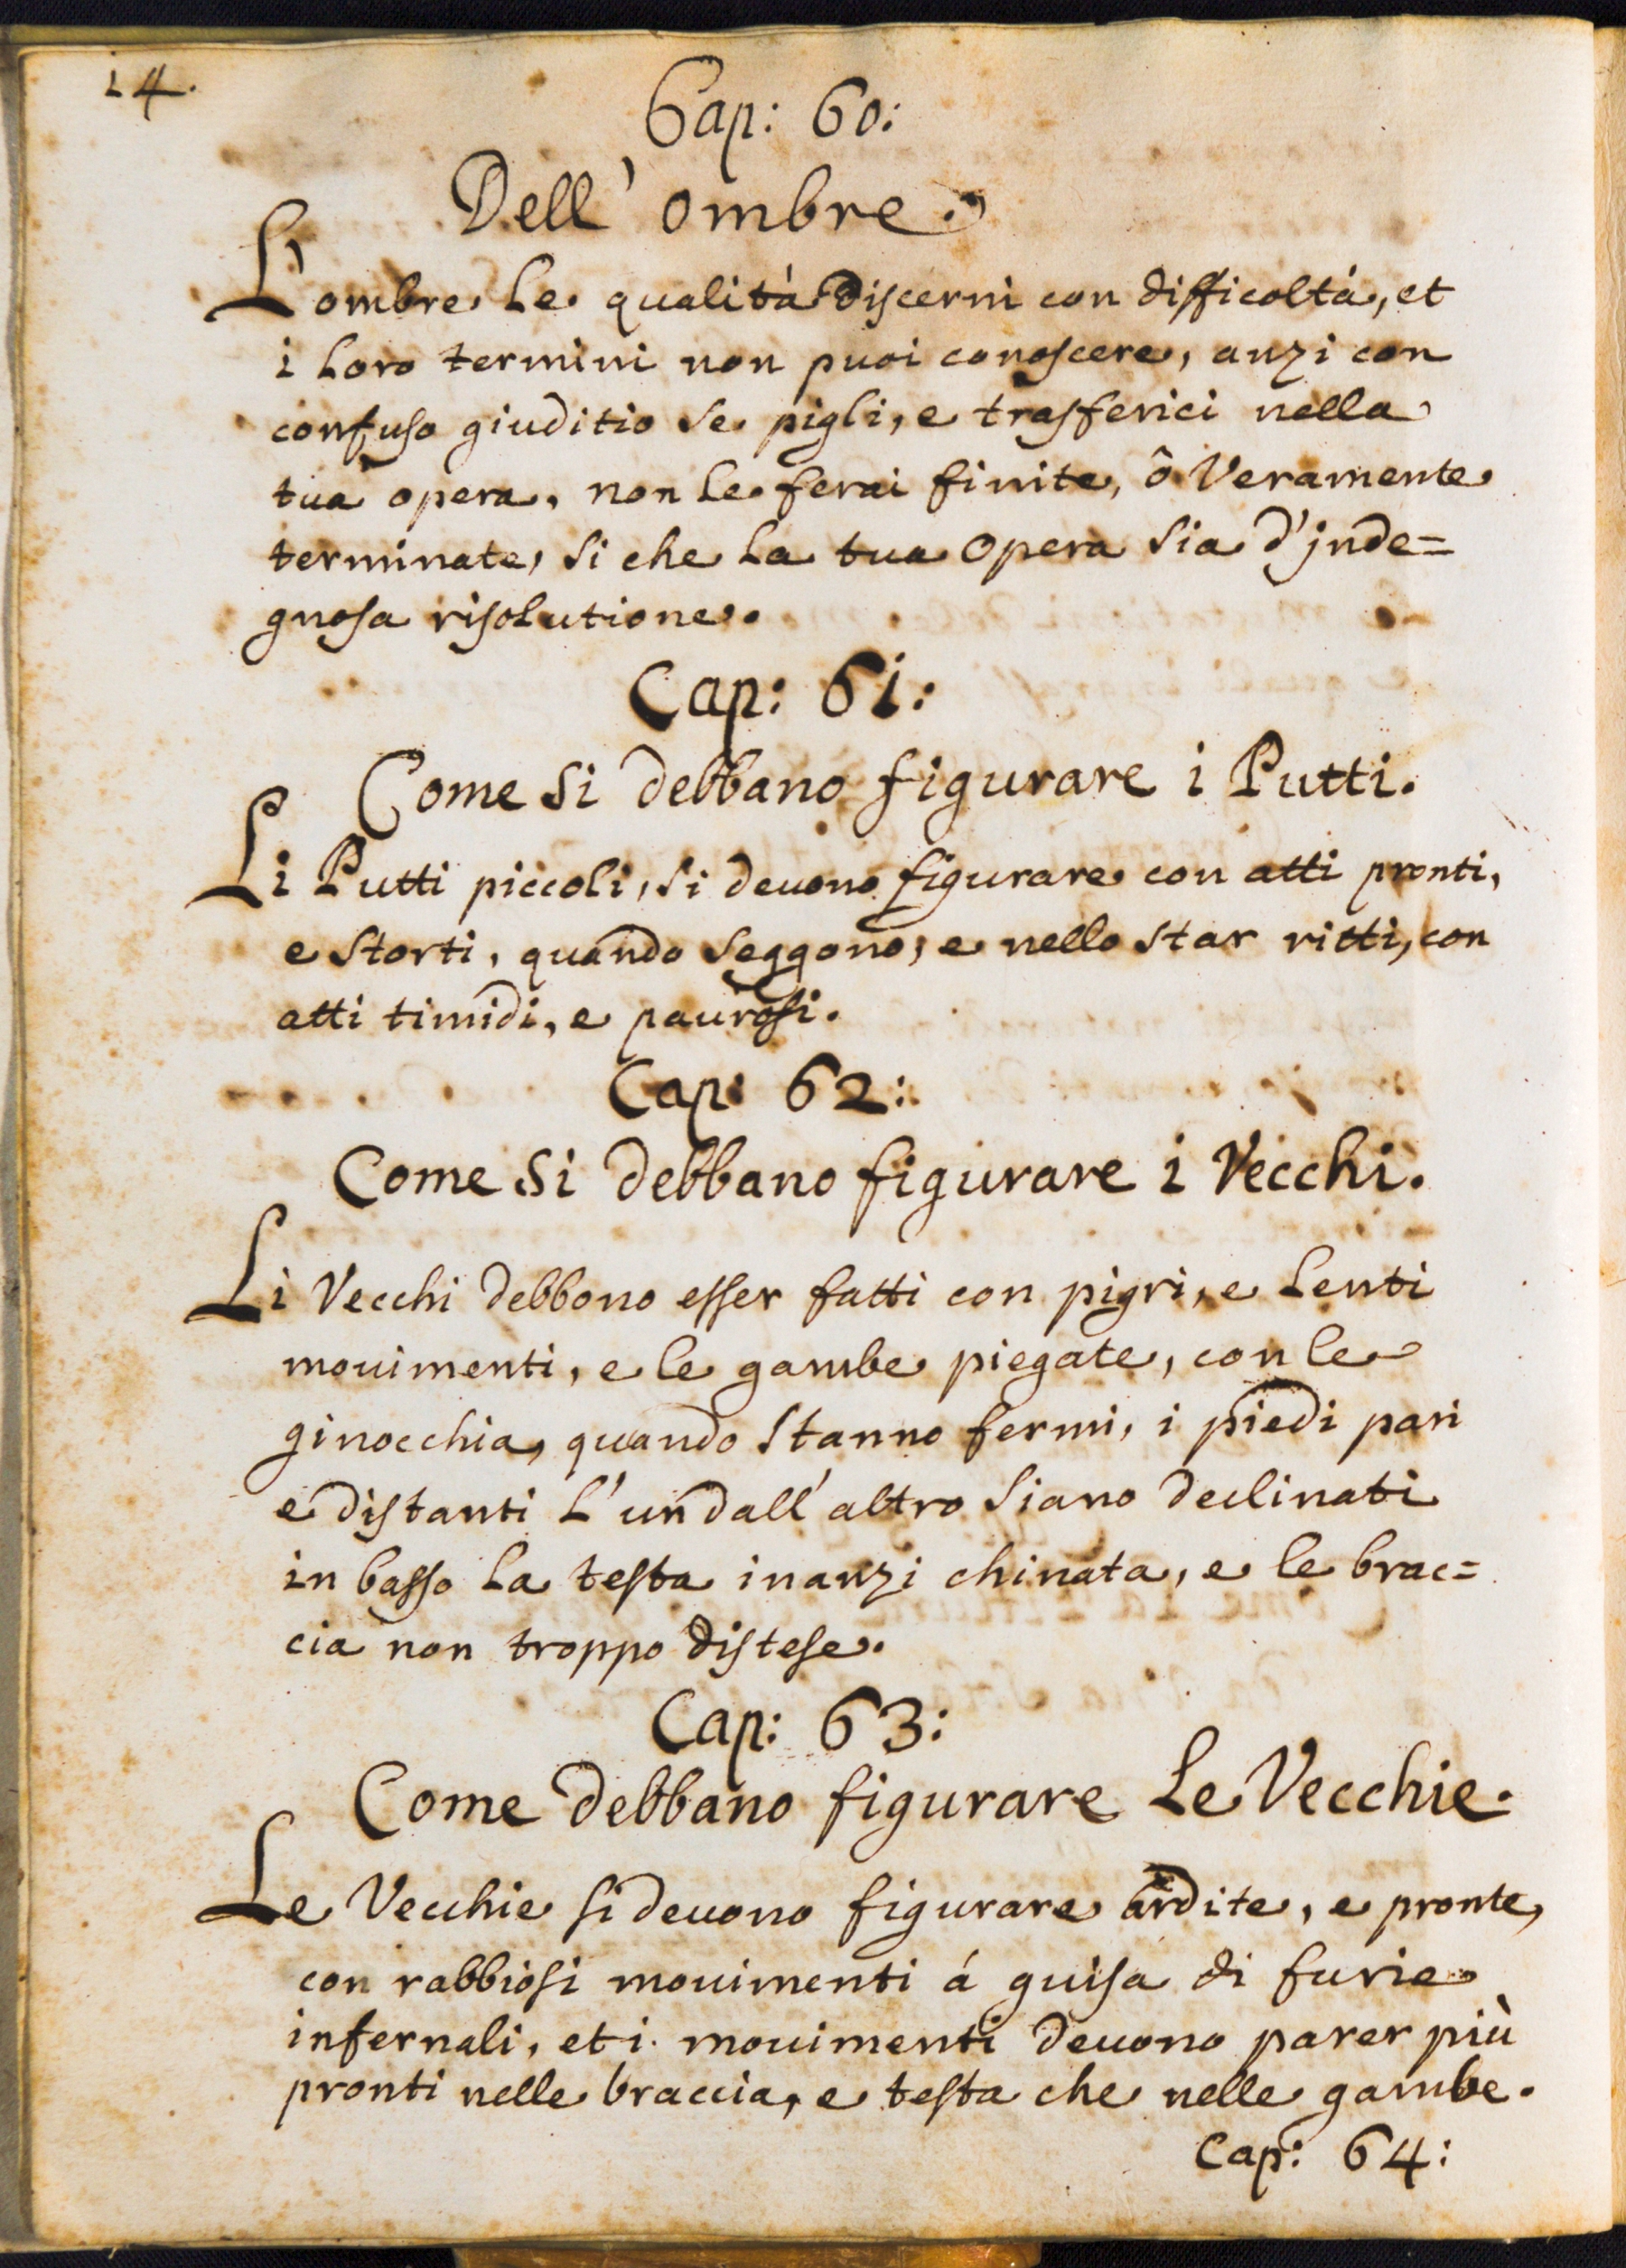 14.
Cap: 60:
Dell' ombre.
L'ombre le qualitá discerni con difficoltá, et
i loro termini non puoi conoscere, anzi con
confuso giuditio se pigli, e trasferici nella
tua opera, non le ferai finite, ô veramente
terminate, si che la tua opera sia d'jnde=
gnosa risolutione.
Cap: 61:
Come si debbano figurare i Putti.
Li Putti piccoli, si deuono figurare con atti pronti,
e storti, quando seggono, e nello star ritti, con
atti timidi, e paurosi.
Cap: 62:
Come si debbano figurare i Vecchi.
Li Vecchi debbono esser fatti con pigri, e lenti
mouimenti, e le gambe piegate, con le
ginocchia, quando stanno fermi, i piedi pari
e distanti l'un dall' altro siano declinati
in basso la testa inanzi chinata, e le brac=
cia non troppo distese.
Cap: 63:
Come debbano figurare le Vecchie.
Le Vecchie si deuono figurare ardite, e pronte,
con rabbiosi mouimenti á guisa di furie
infernali, et i mouimenti deuono parer più
pronti nelle braccia, e testa che nelle gambe.
Cap: 64: